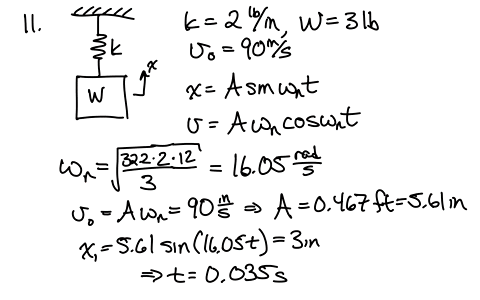 11.
k = 2 lb/in, W = 3 lb
k
v₀ = 90 in/s
x
W
x = A sin ωₙt
v = A ωₙ cos ωₙt
ωₙ = √(322·2·12 / 3) = 16.05 rad/s
v₀ = A ωₙ = 90 in/s ⇒ A = 0.467 ft = 5.61 in
x₁ = 5.61 sin(16.05t) = 3 in
⇒ t = 0.035 s